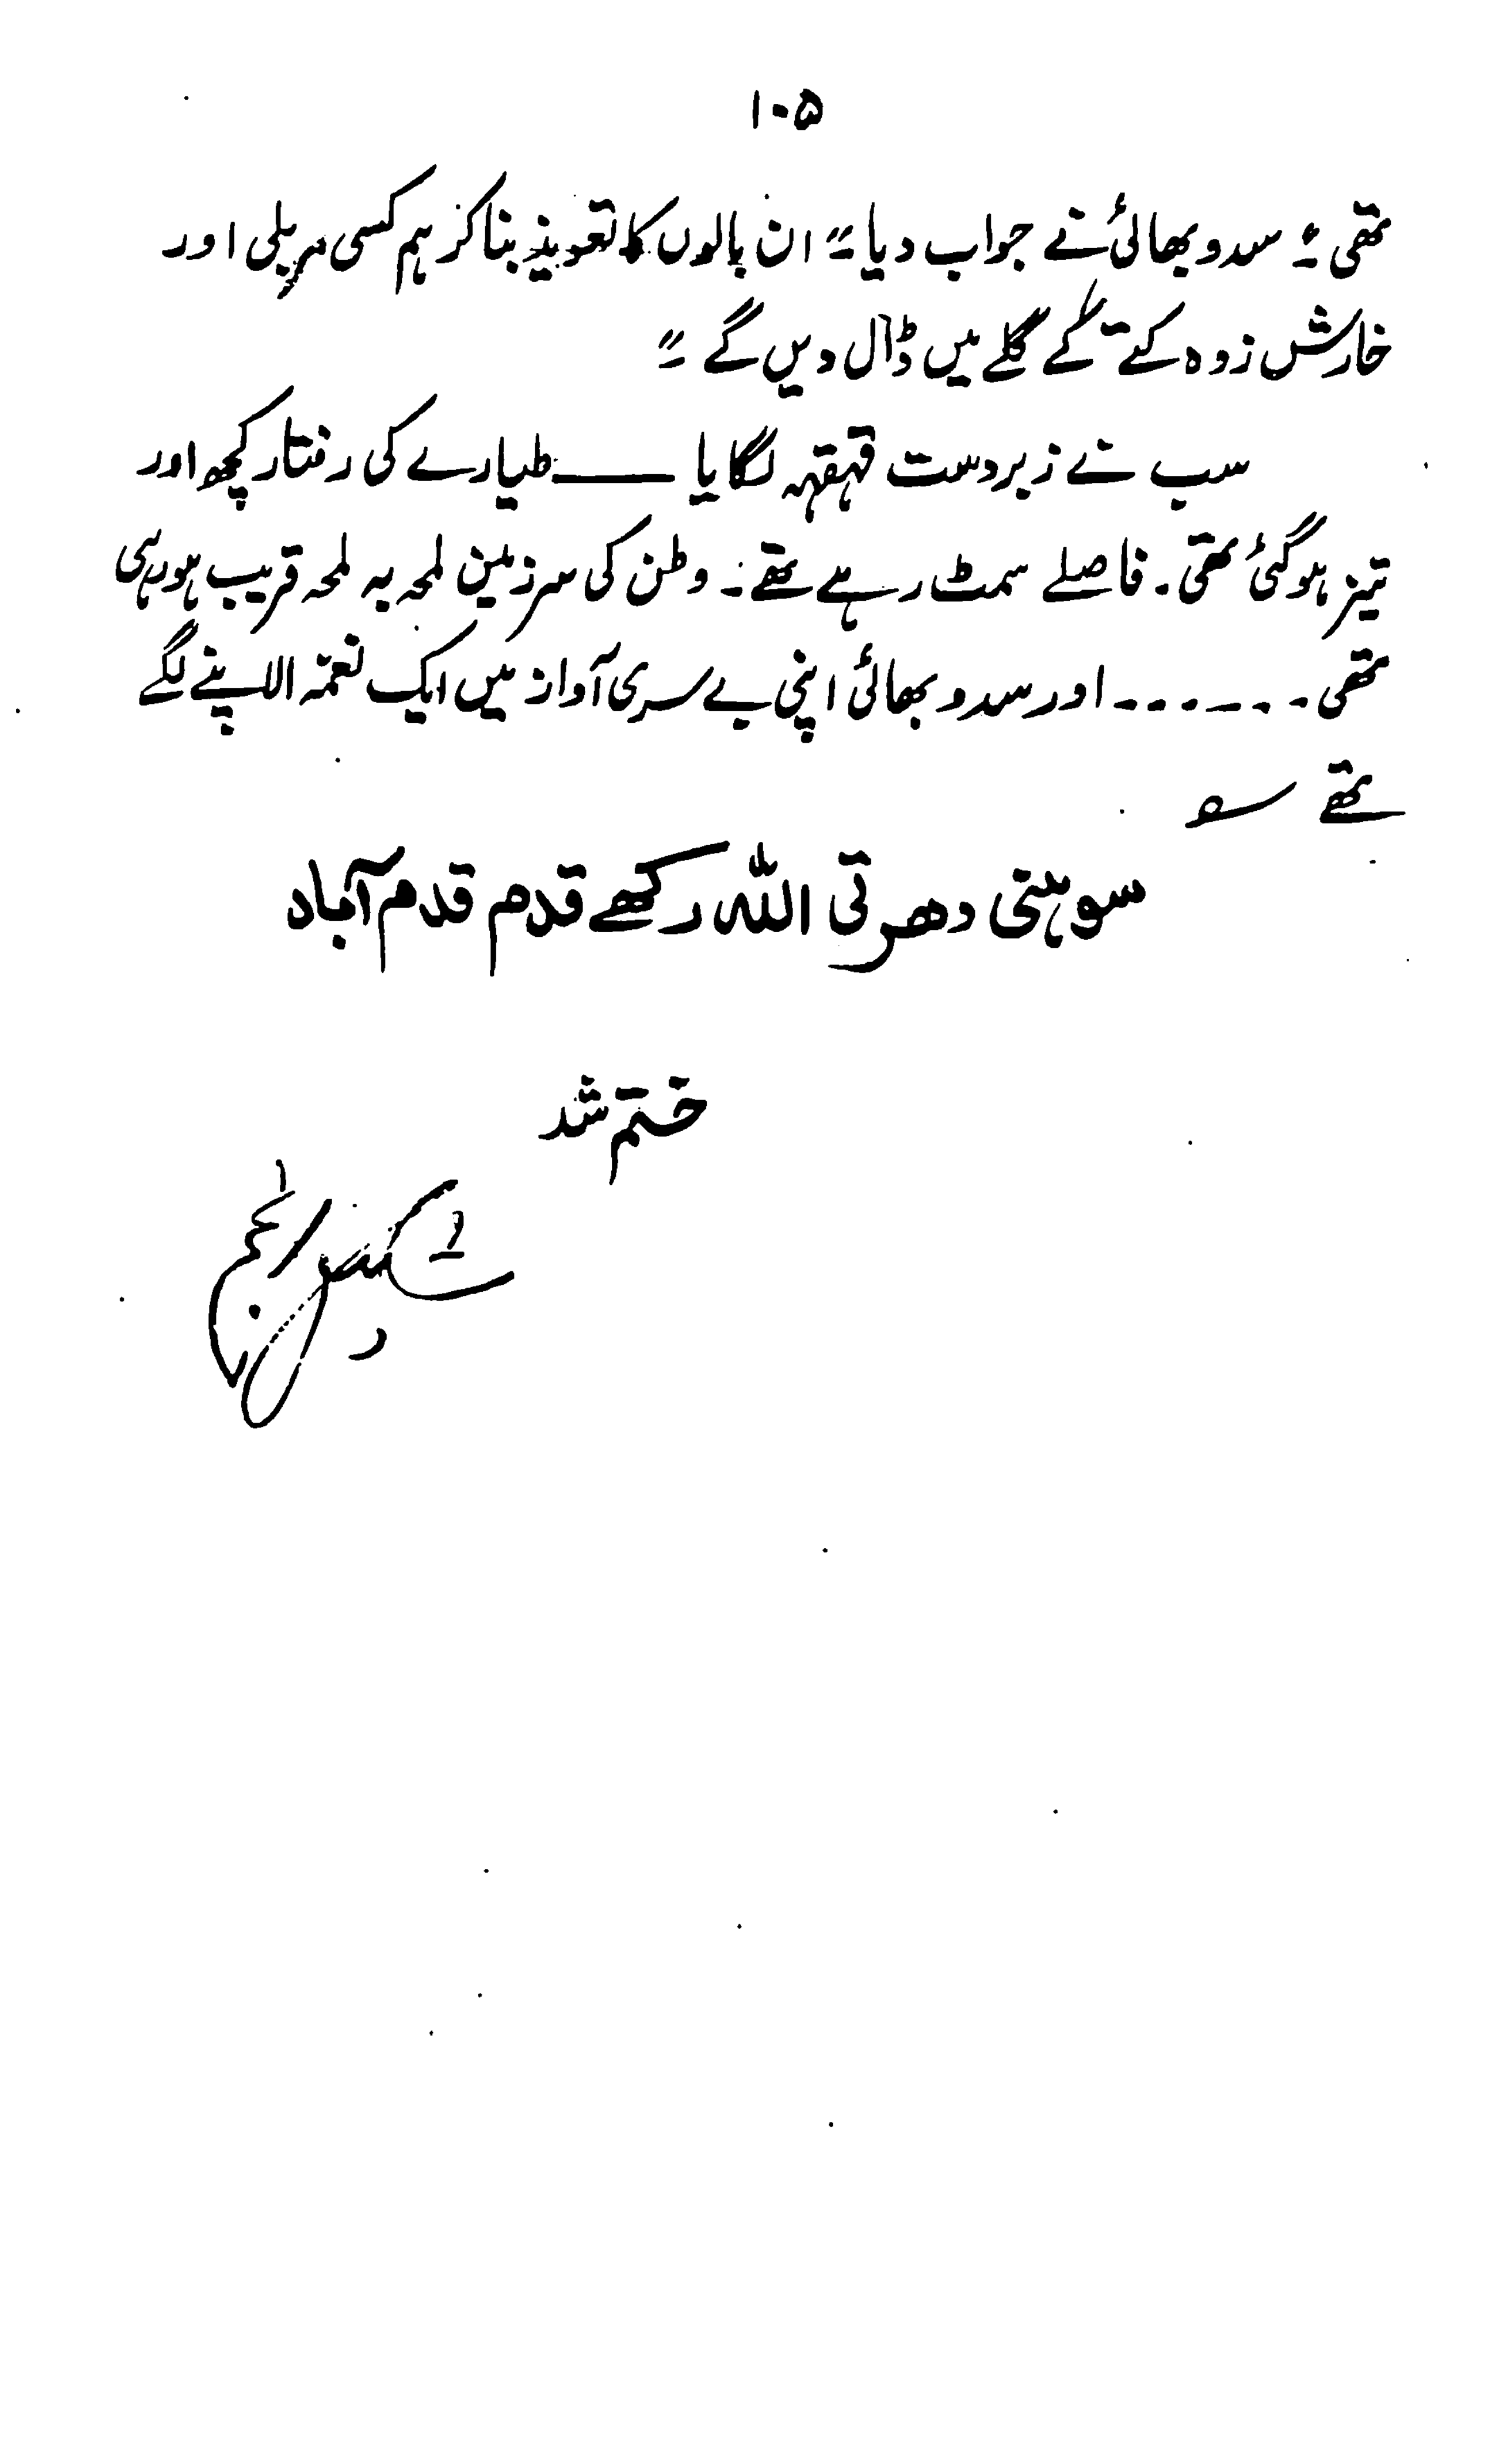 ۱۰۵
تھی۔" سدو بھائی نے جواب دیا۔ "ان بالوں کا تعویذ بنا کر ہم کسی مریل اور
خارش زدہ کتے کے گلے میں ڈال دیں گے۔"
سب نے زبردست قہقہہ لگایا ــــــ طیارے کی رفتار کچھ اور
تیز ہو گئی تھی۔ فاصلے سمٹ رہے تھے۔ وطن کی سرزمین لمحہ بہ لمحہ قریب ہو رہی
تھی۔۔۔۔۔۔۔ اور سدو بھائی اپنی بے سری آواز میں ایک نغمہ الاپنے لگے
تھے ؎
سوہنی دھرتی اللہ رکھے قدم قدم آباد
ختم شد